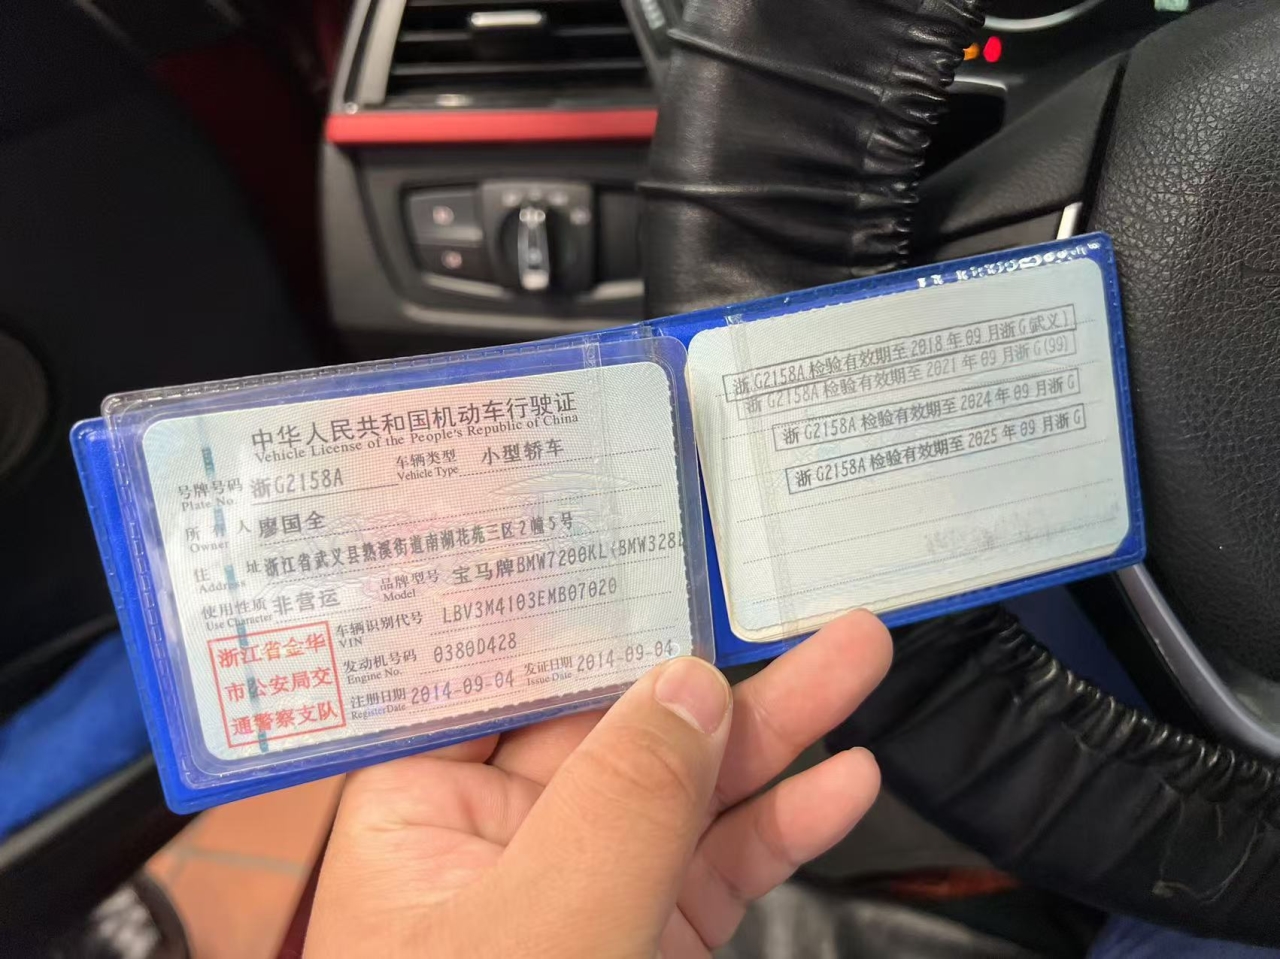 中华人民共和国机动车行驶证
Vehicle License of the People's Republic of China
号牌号码 浙G2158A 车辆类型 小型轿车
Plate No. Vehicle Type
所有人 廖国全
Owner
住址 浙江省武义县熟溪街道南湖花苑三区2幢5号
Address
使用性质 非营运 品牌型号 宝马牌BMW7200KL(BMW328
Use Character Model
车辆识别代号 LBV3M4103EMB07020
VIN
发动机号码 0380D428
Engine No.
注册日期 2014-09-04 发证日期 2014-09-04
Register Date Issue Date
浙江省金华
市公安局交
通警察支队
浙G2158A 检验有效期至 2018年09月浙G(武义)
浙G2158A 检验有效期至 2021年09月浙G(99)
浙G2158A 检验有效期至 2024年09月浙G
浙G2158A 检验有效期至 2025年09月浙G